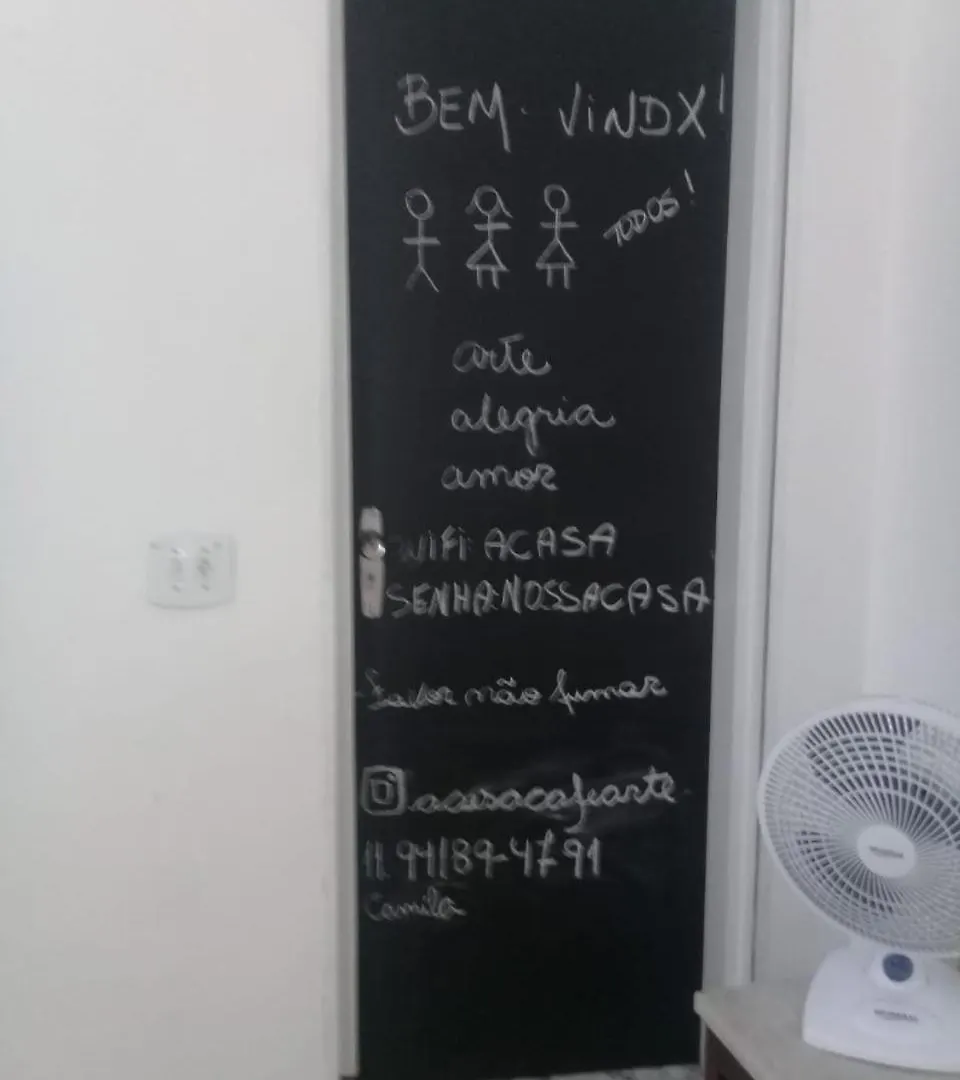 BEM-VINDX!
TODOS!
arte
alegria
amor
WIFI ACASA
SENHA:NOSSACASA
Favor não fumar
acasacafearte
11.94189-4791
Camila